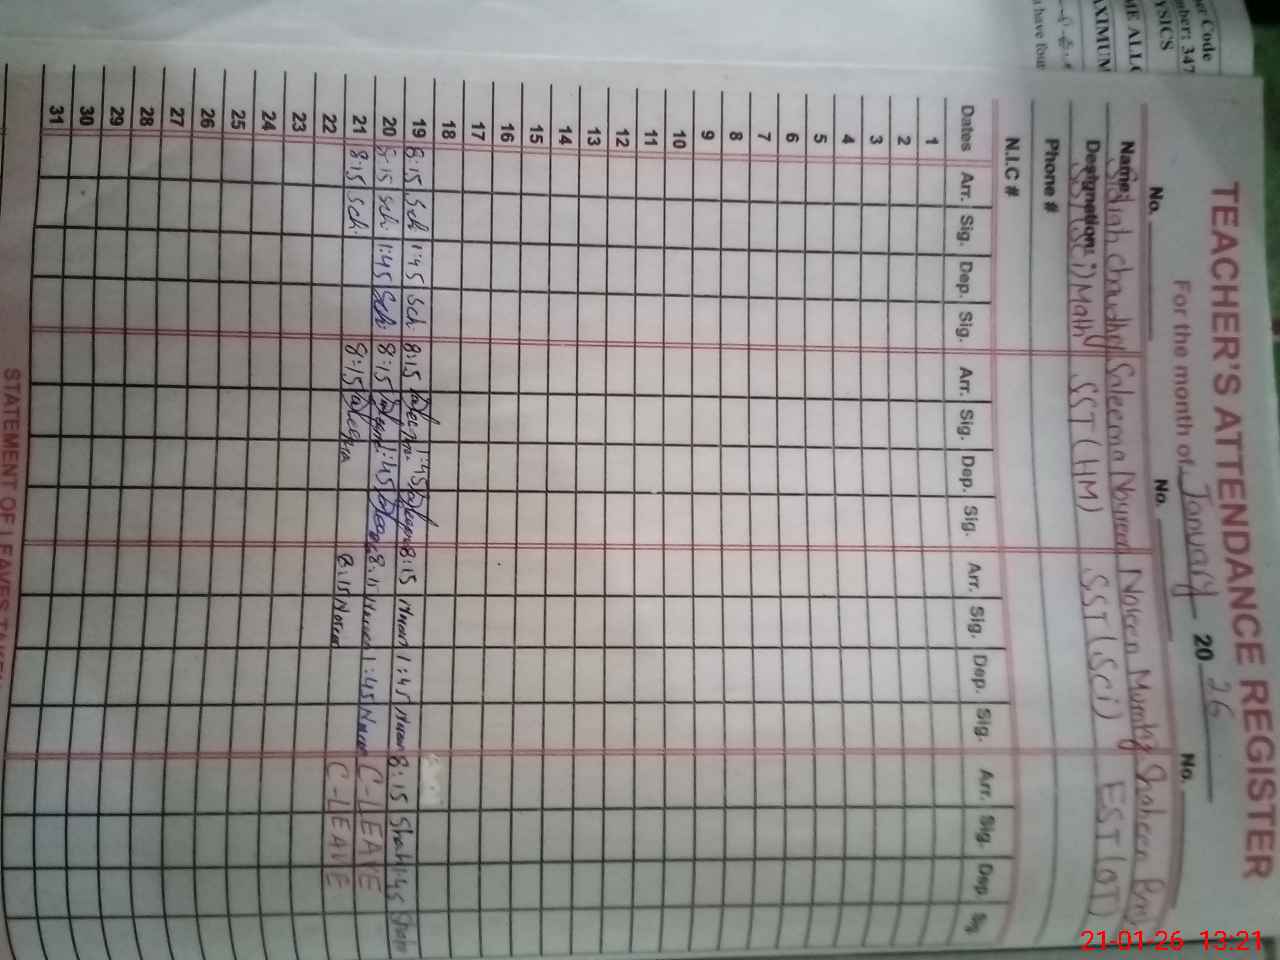 er Code
mber: 347
YSICS
ME ALL
AXIMUM
have four
TEACHER'S ATTENDANCE REGISTER
For the month of January 2026
No. No. No.
Name: Saleema Noureen Noreen Mumtaz Shaheen
Designation: SST (Sci) Math SST (HM) SST (Sci) EST (OT)
Phone #
N.I.C #
Dates Arr. Sig. Dep. Sig. Arr. Sig. Dep. Sig. Arr. Sig. Dep. Sig. Arr. Sig. Dep. Sig.
1
2
3
4
5
6
7
8
9
10
11
12
13
14
15
16
17
18
19 8:15 Sch 1:45 Sch. 8:15 1:45 8:15 1:45 8:15 1:45
20 8:15 Sch. 1:45 Sch. 8:15 1:45 1:45 C-LEAVE
21 8:15 Sch. 8:15 8:15 C-LEAVE
22
23
24
25
26
27
28
29
30
31
STATEMENT OF LEAVES
21-01-26 13:21